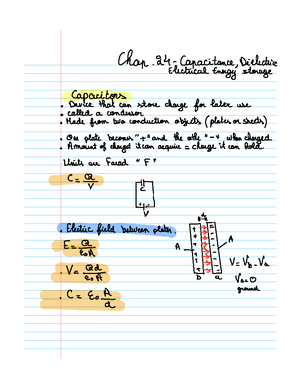 Chap. 24 - Capacitance, Dielectric
Electrical Energy storage
Capacitors
• Device that can store charge for later use
• called a condensor
• Made from two conduction objects (plates or sheets)
• One plate becomes "+" and the othe "-" when charged
• Amount of charge it can acquire = charge it can hold.
Units are Farad "F"
C = Q/V
C
V
• Electric field between plates
E = Q/ε₀A
• V = Qd/ε₀A
• C = ε₀ A/d
d
A
A
b
a
V = Vb - Va
Va = 0
ground